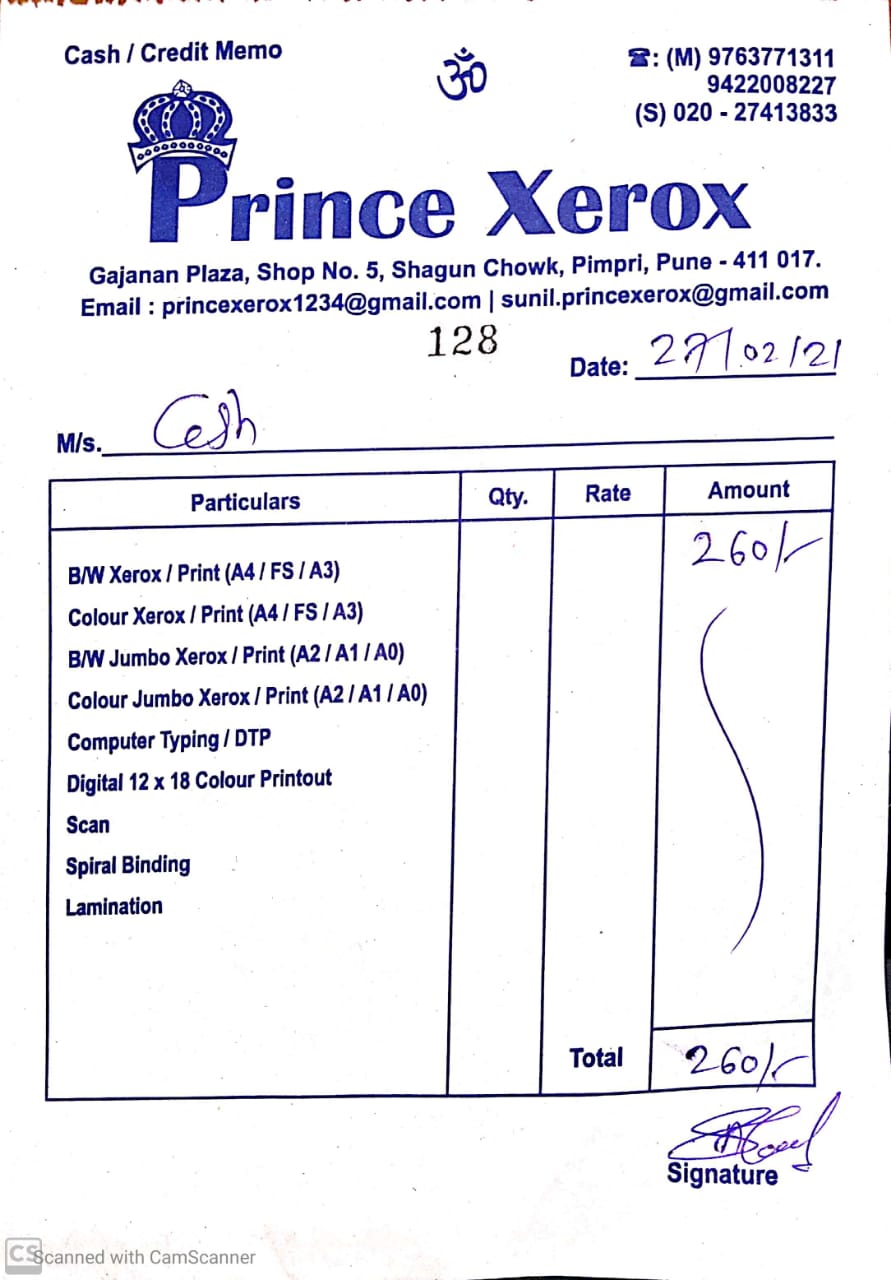 Cash / Credit Memo
ॐ
☎: (M) 9763771311
9422008227
(S) 020 - 27413833
Prince Xerox
Gajanan Plaza, Shop No. 5, Shagun Chowk, Pimpri, Pune - 411 017.
Email : princexerox1234@gmail.com | sunil.princexerox@gmail.com
128
Date: 27/02/21
M/s. Cash
Particulars Qty. Rate Amount
260/-
B/W Xerox / Print (A4 / FS / A3)
Colour Xerox / Print (A4 / FS / A3)
B/W Jumbo Xerox / Print (A2 / A1 / A0)
Colour Jumbo Xerox / Print (A2 / A1 / A0)
Computer Typing / DTP
Digital 12 x 18 Colour Printout
Scan
Spiral Binding
Lamination
Total 260/-
Signature
CS Scanned with CamScanner